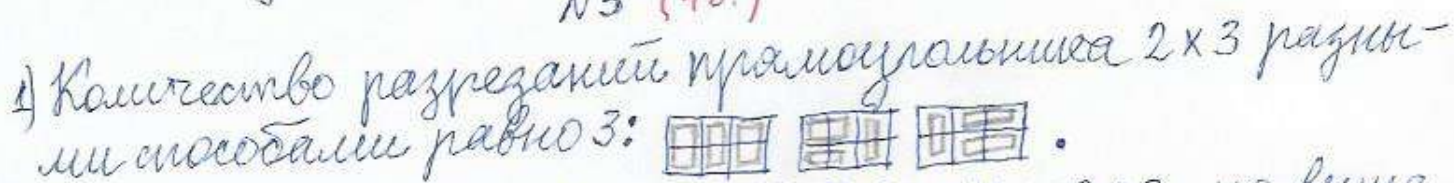 N3
1) Количество разрезаний прямоугольника 2 x 3 разны-
ми способами равно 3: